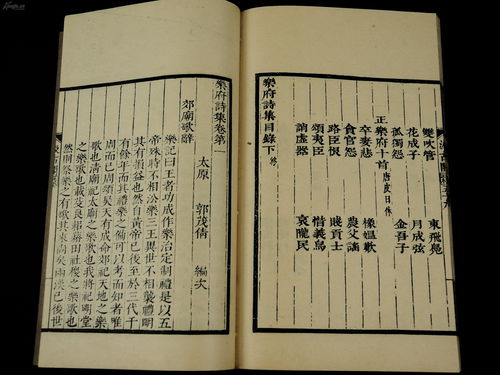 雙吹管 東飛鳧
花成子 月成弦
孤獨怨 金吾子
正樂府十首 唐皮日休
卒妻悲 橡媼歎
貪官怨 農父謠
路臣恨 賤貢士
頌夷臣 惜義鳥
誚虛器 哀隴民
樂府詩集目錄下 終
樂府詩集卷第一
太原 郭茂倩 編次
郊廟歌辭
樂記曰王者功成作樂治定制禮是以五
帝殊時不相沿樂三王異世不相襲禮明
其有損益也然自黃帝已後至於三代千
有餘年而其禮樂之備可以考而知者唯
周而已周頌昊天有成命郊祀天地之樂
歌也清廟祀太廟之樂歌也我將祀明堂
之樂歌也載芟良耜籍田社稷之樂歌也
然則祭樂之有歌其來尚矣兩漢已後世